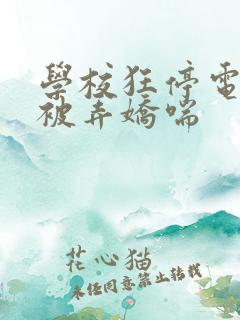 學校狂停電
被弄嬌喘
花心猫
未经同意禁止转载